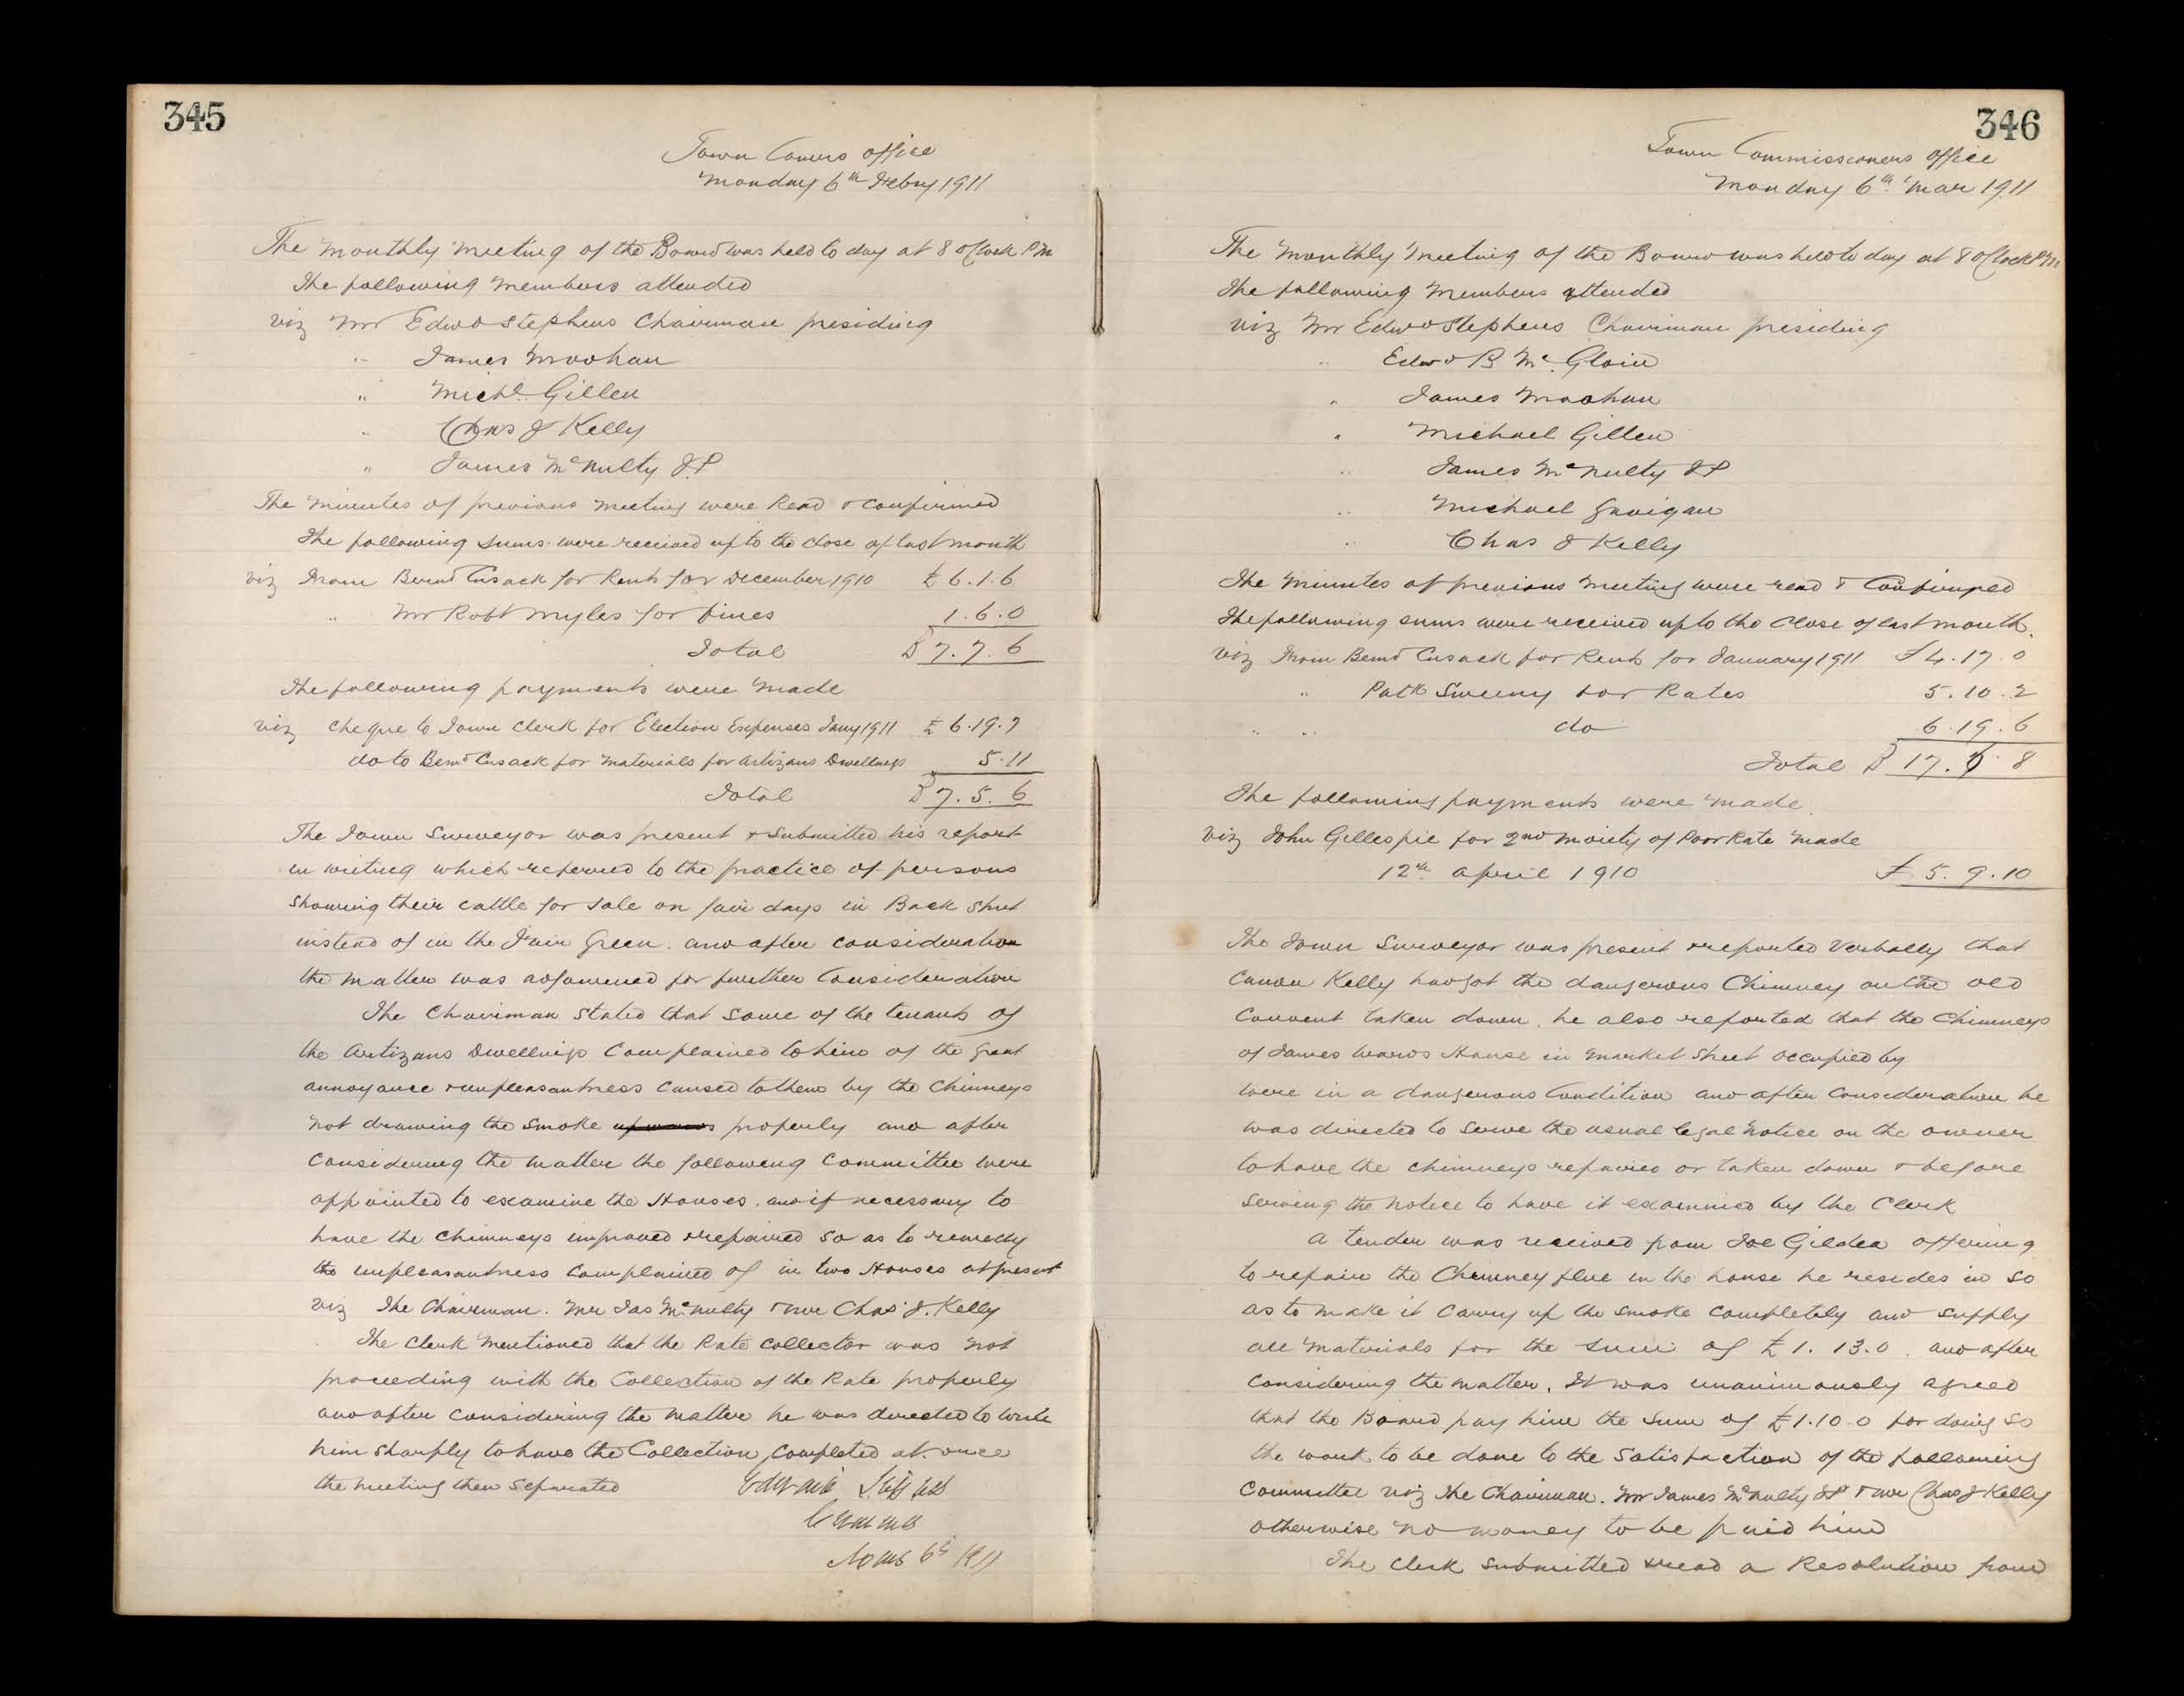 345
Town Comrs office
Monday 6th Febry 1911
The Monthly Meeting of the Board was held to day at 8 oClock PM
The following Members attended
viz Mr Edwd Stephens Chairman presiding
" James Moohan
" Michl Gillen
" Chas J Kelly
" James McNulty J.P
The Minutes of previous Meeting were Read & Confirmed
The following sums were received up to the close of last month
viz From Bernd Cusack for Rents for December 1910 £6.1.6
" Mr Robt Myles for fines 1.6.0
Total £7.7.6
The following payments were Made
viz Cheque to Town Clerk for Election Expenses Jany 1911 £6.19.7
do to Bernd Cusack for Materials for Artizans Dwellings 5.11
Total £7.5.6
The Town Surveyor was present & Submitted his report
in writing which referred to the practice of persons
Showing their cattle for Sale on fair days in Back Street
instead of in the Fair Green. and after consideration
the matter was adjourned for further Consideration
The Chairman Stated that some of the tenants of
the Artizans Dwellings Complained to him of the great
annoyance & unpleasantness Caused to them by the Chimneys
not drawing the Smoke upwards properly and after
Considering the matter the following Committee were
appointed to examine the Houses. and if necessary to
have the Chimneys improved & repaired so as to remedy
the unpleasantness Complained of in two Houses at present
viz The Chairman. Mr Jas McNulty & Mr Chas J. Kelly
The Clerk Mentioned that the Rate Collector was not
proceeding with the Collection of the Rate properly
and after Considering the Matter he was directed to write
him Sharply to have the Collection Completed at once
the meeting then Separated Edward Stephens
Chairman
March 6th 1911
346
Town Commissioners office
Monday 6th Mar 1911
The Monthly Meeting of the Board was held to day at 8 oClock PM
The following Members attended
viz Mr Edwd Stephens Chairman presiding
" Edwd B McGloin
" James Moohan
" Michael Gillen
" James McNulty J.P
" Michael Gavigan
" Chas J Kelly
The Minutes of previous Meeting were read & Confirmed
The following sums were received up to the Close of last month.
viz From Bernd Cusack for Rents for January 1911 £4.17.0
" Patk Sweeny for Rates 5.10.2
" " do 6.19.6
Total £17.6.8
The following payments were Made.
Viz John Gillespie for 2nd Moiety of Poor Rate Made
12th April 1910 £5.9.10
The Town Surveyor was present & reported Verbally that
Canon Kelly had got the dangerous Chimney on the old
Convent taken down. he also reported that the Chimneys
of James Wards House in Market Street occupied by
were in a dangerous Condition and after Consideration he
was directed to Serve the usual legal Notice on the owner
to have the Chimneys repaired or taken down & before
Serving the Notice to have it examined by the Clerk
A tender was received from Joe Gildea offering
to repair the Chimney flue in the house he resides in so
as to make it Carry up the Smoke Completely and supply
all Materials for the sum of £1.13.0. and after
Considering the matter. It was unanimously agreed
that the Board pay him the Sum of £1.10.0 for doing so
the work to be done to the Satisfaction of the following
Committee viz The Chairman. Mr James McNulty J.P & Mr Chas J Kelly
otherwise no money to be paid him
The Clerk submitted & read a Resolution from